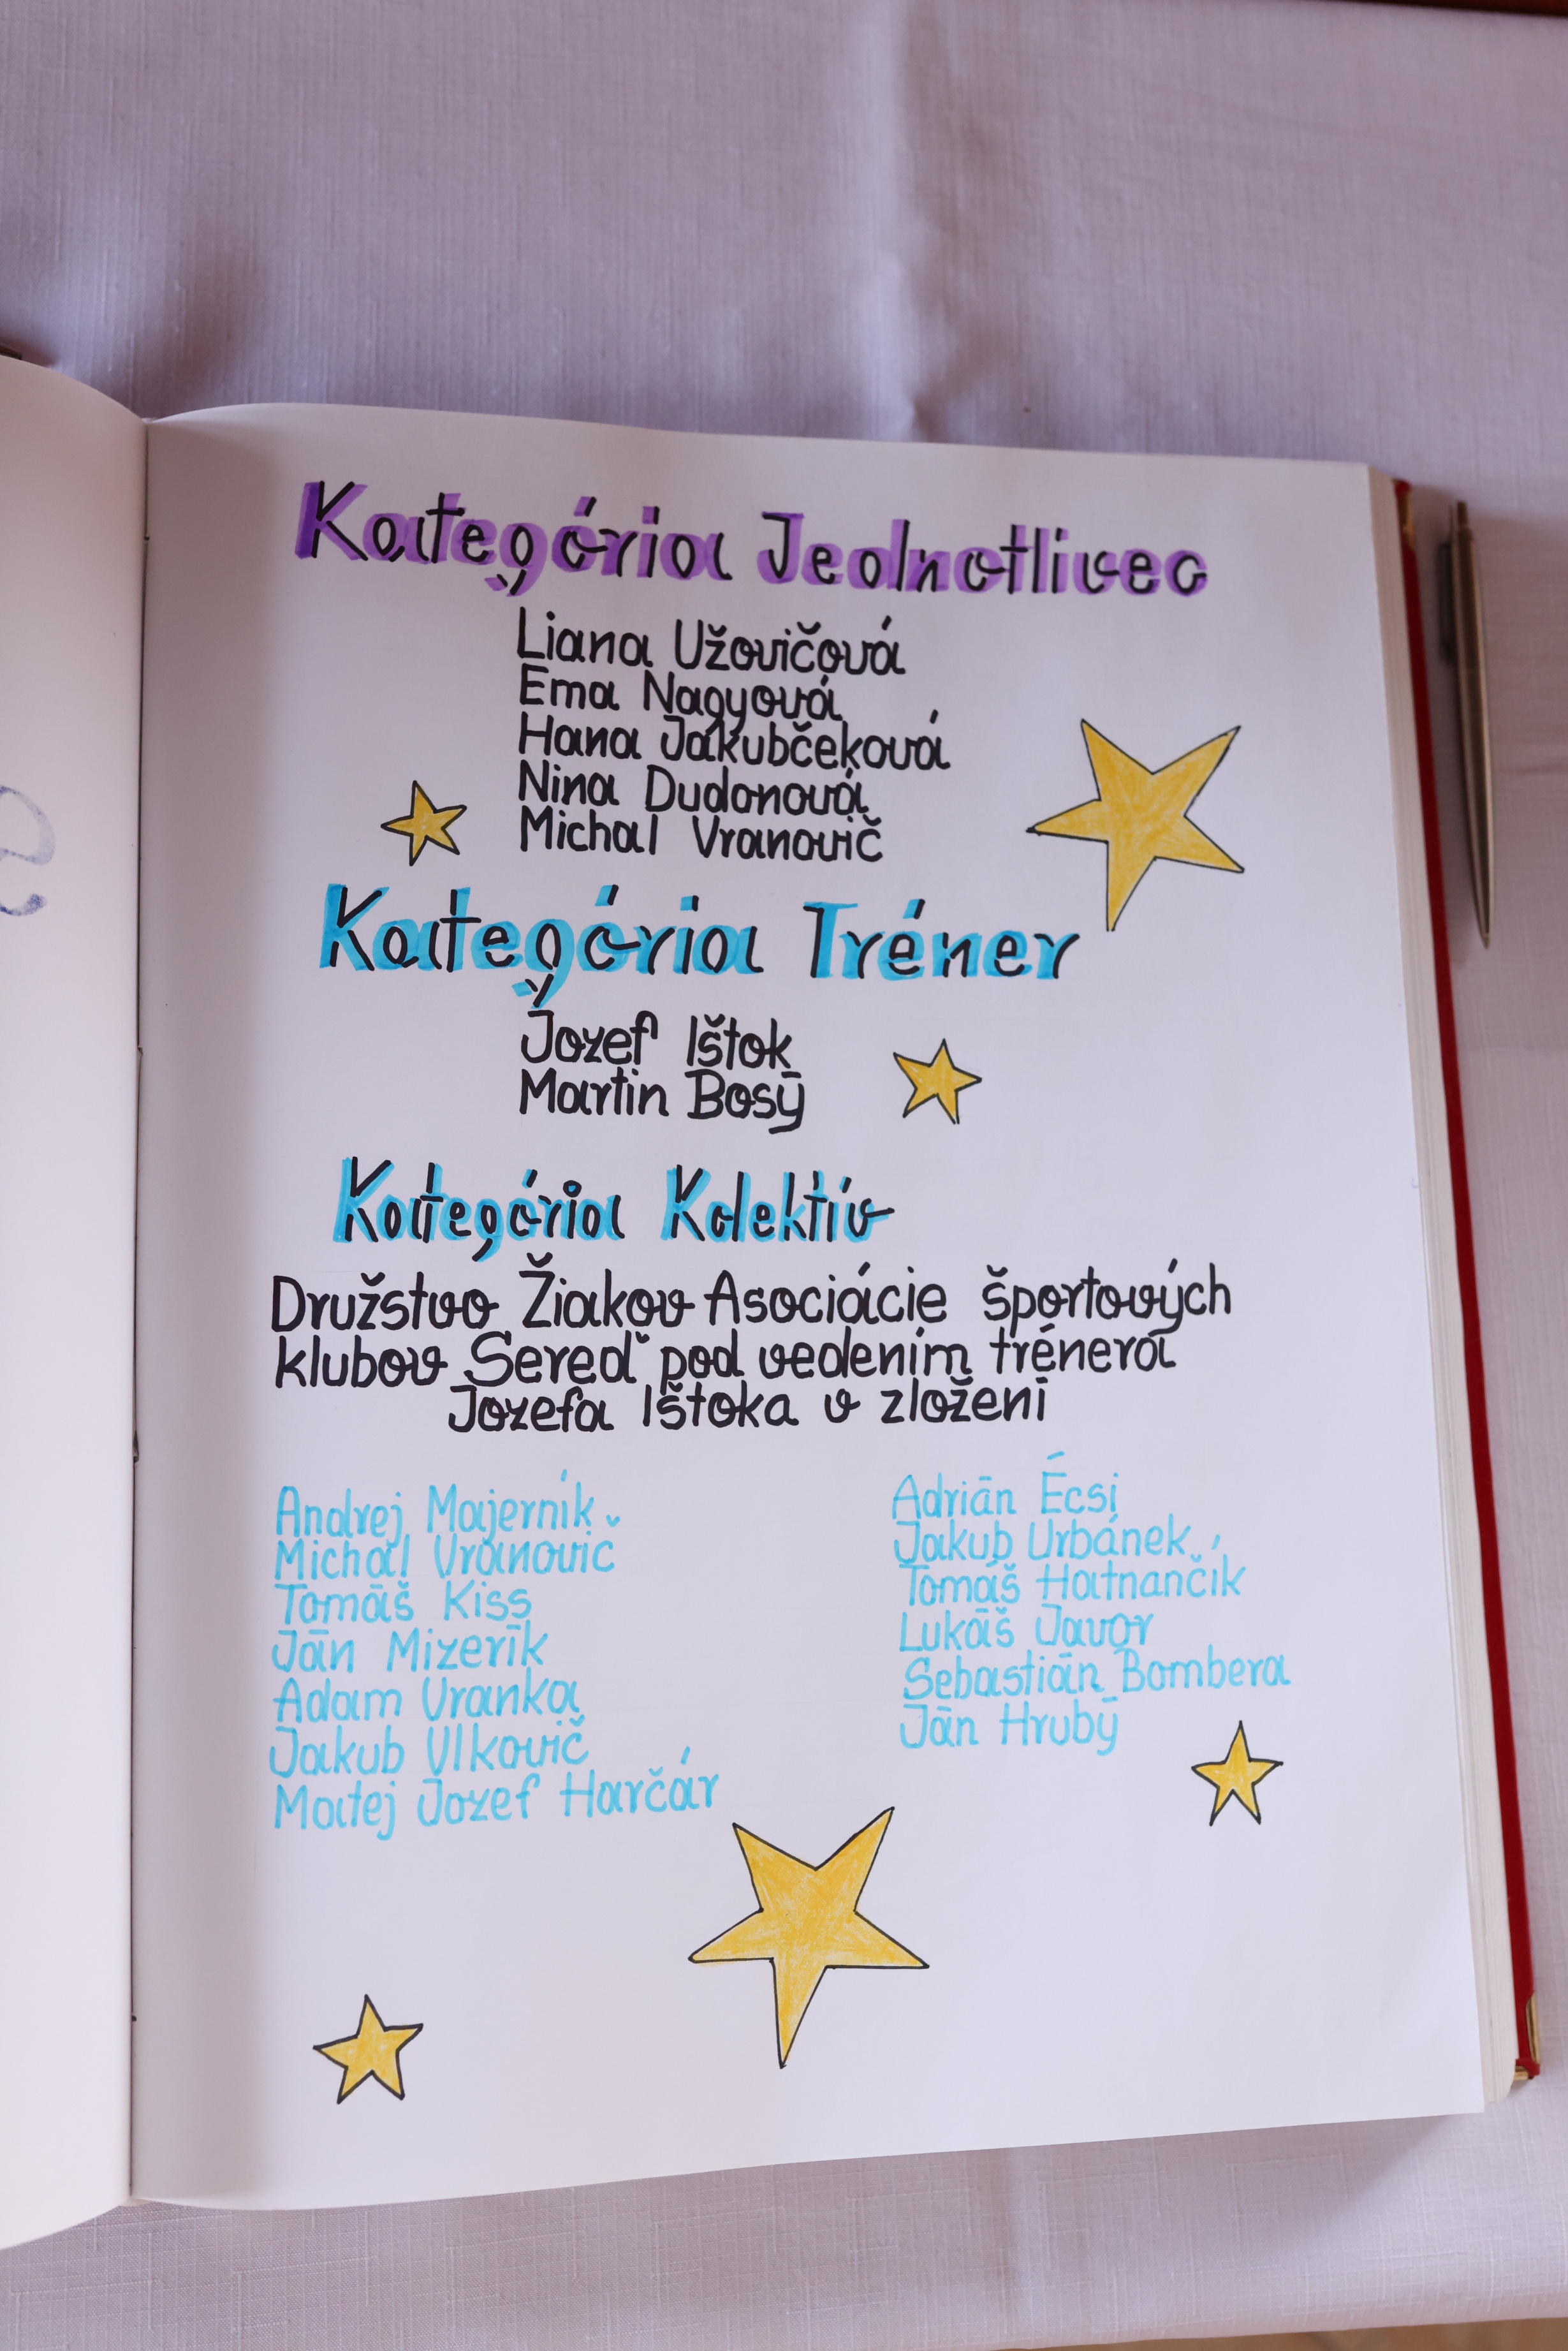 Kategória Jednotlivec
Liana Užovičová
Ema Nagyová
Hana Jakubčeková
Nina Dudonová
Michal Vranovič
Kategória Tréner
Jozef Ištok
Martin Bosý
Kategória Kolektív
Družstvo Žiakov Asociácie športových
klubov Sereď pod vedením trénera
Jozefa Ištoka v zložení
Andrej Majerník
Michal Vranovič
Tomáš Kiss
Ján Mizerík
Adam Vranka
Jakub Vlkovič
Matej Jozef Harčár
Adrián Écsi
Jakub Urbánek
Tomáš Hatnančík
Lukáš Javor
Sebastián Bombera
Ján Hrubý